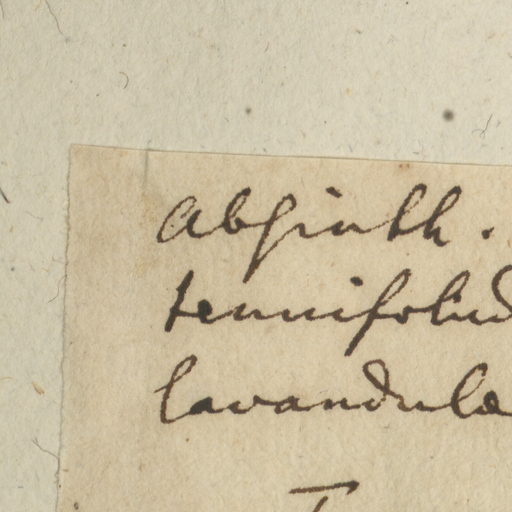 Absinth.
tenuifoliu
lavandula
T